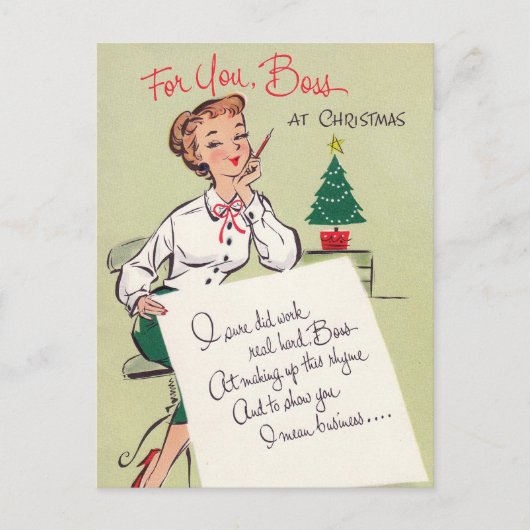 For You, Boss
AT CHRISTMAS
I sure did work
real hard, Boss
At making up this rhyme
And to show you
I mean business....